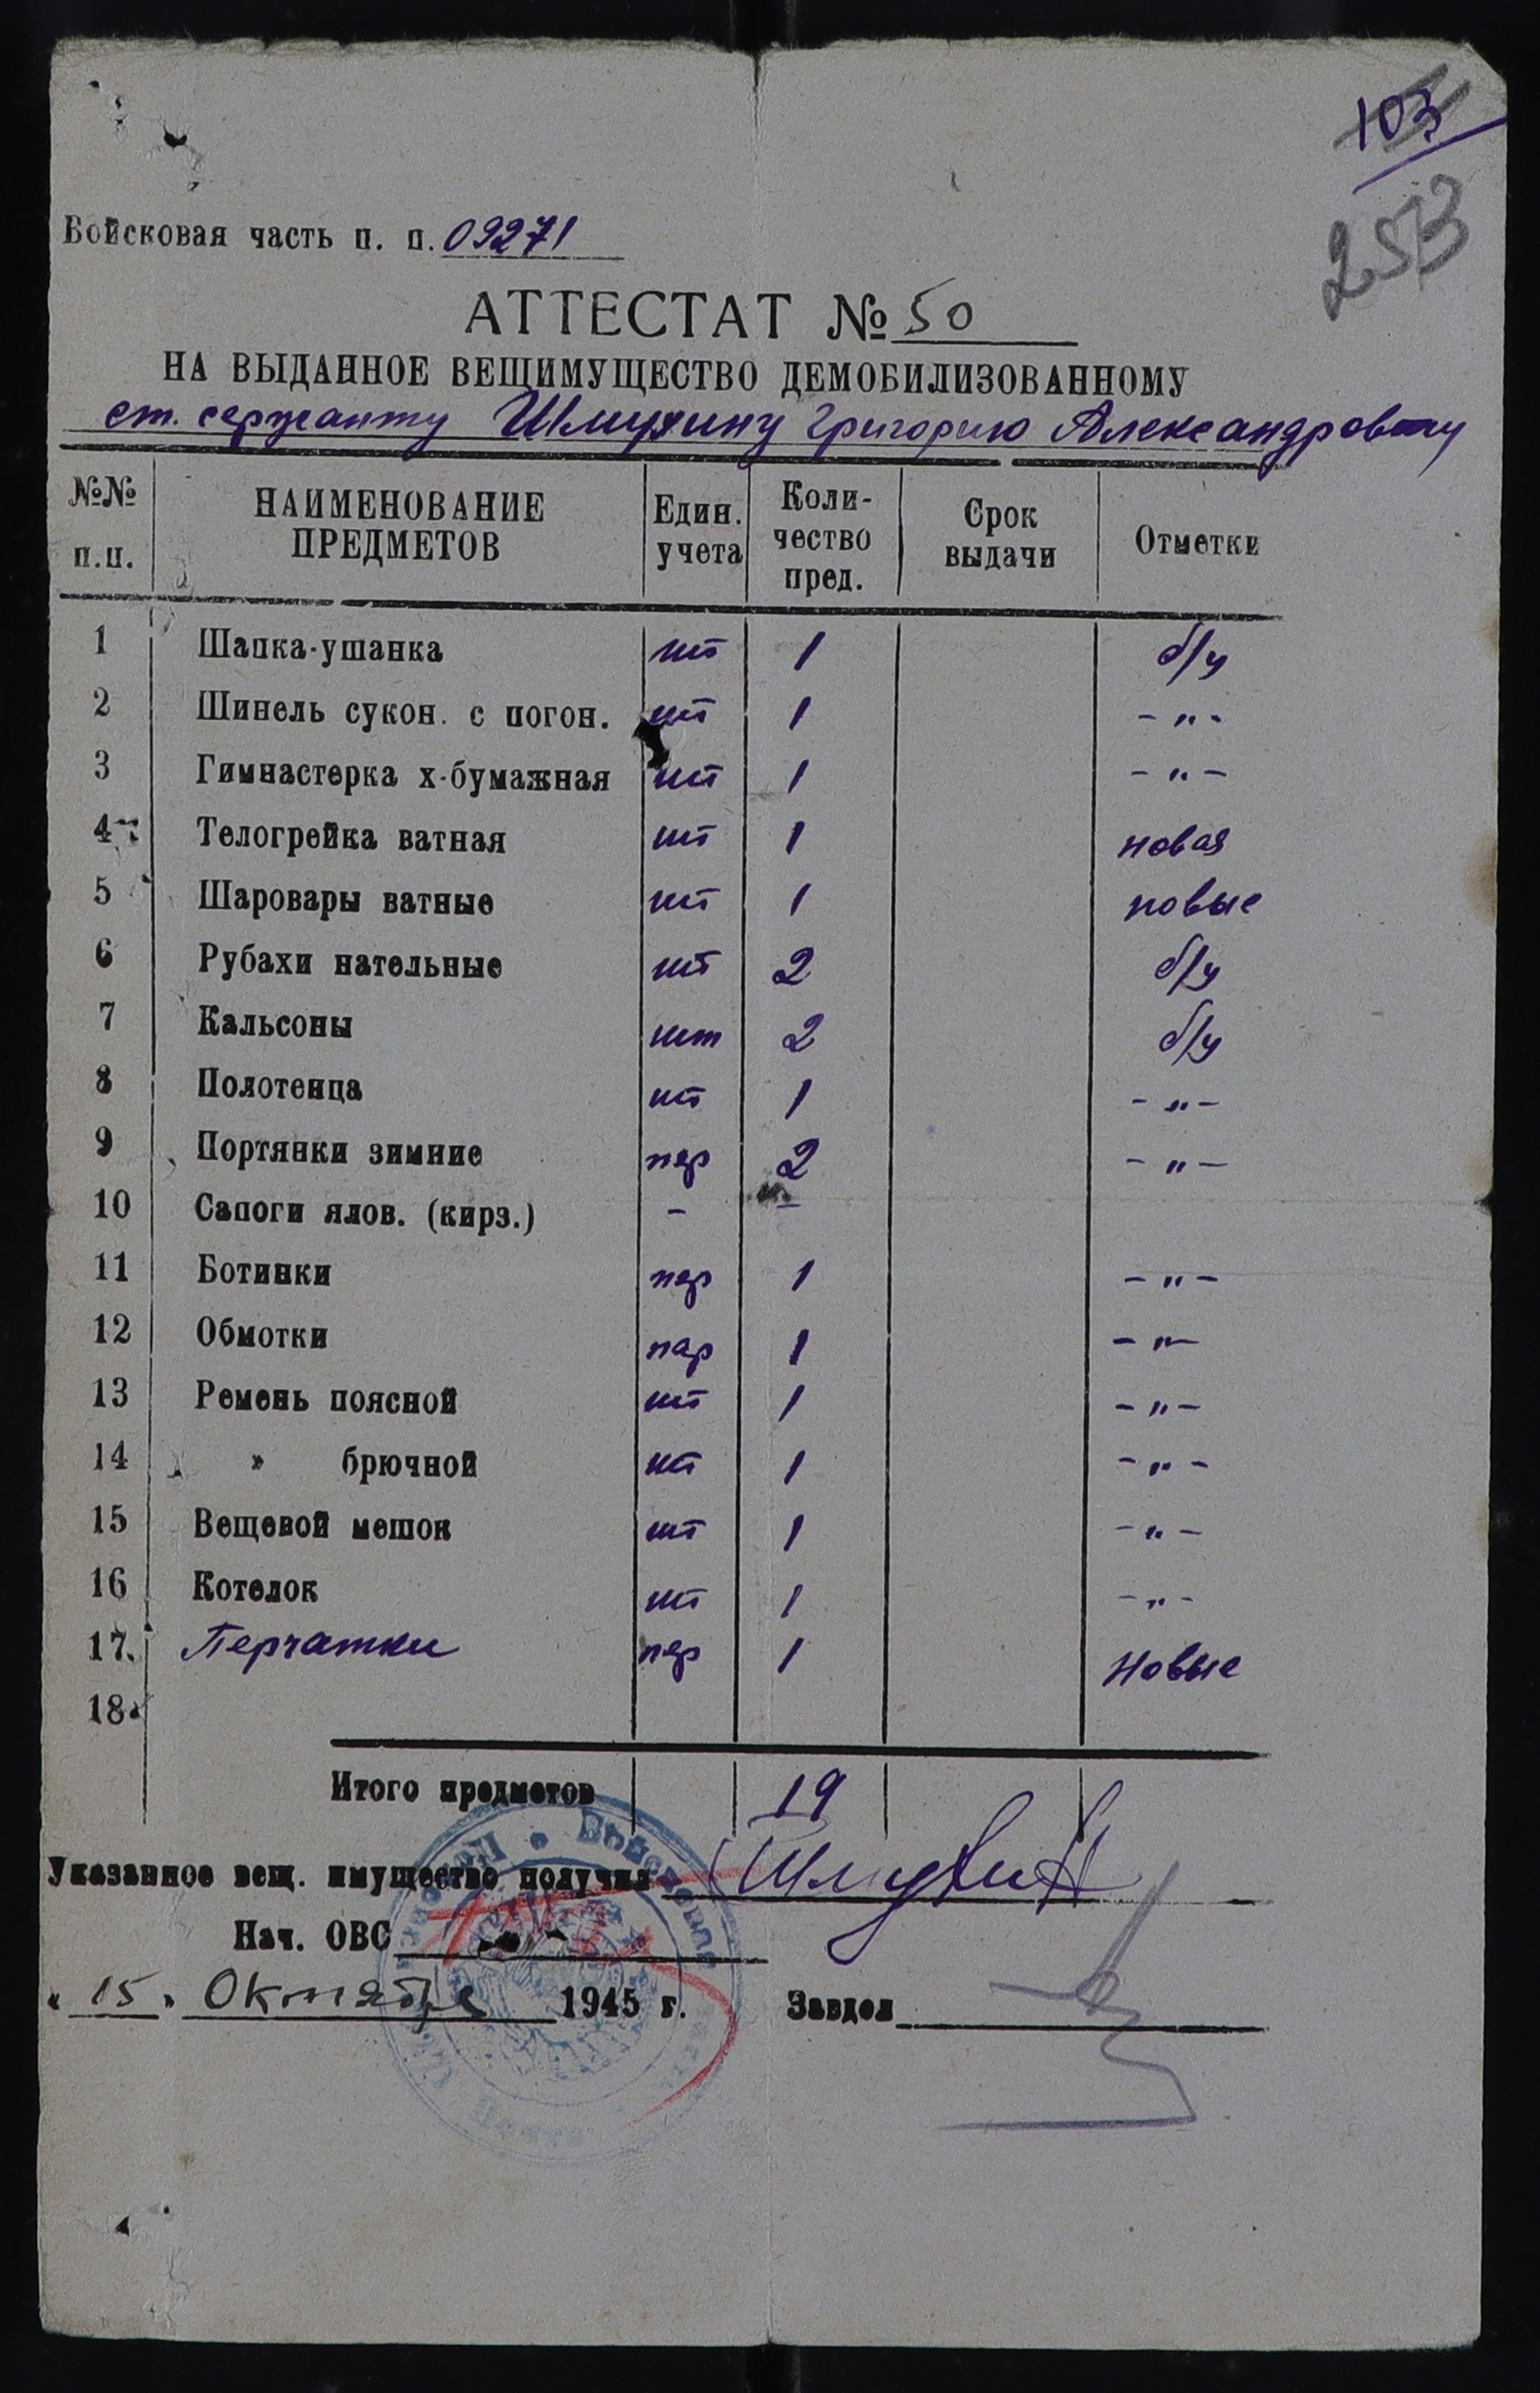 103
253
Войсковая часть п. п. 09271
АТТЕСТАТ № 50
НА ВЫДАННОЕ ВЕЩИМУЩЕСТВО ДЕМОБИЛИЗОВАННОМУ
ст. сержанту Шмухину Григорию Александровичу
№№ п.п. НАИМЕНОВАНИЕ ПРЕДМЕТОВ Един. учета Коли- чество пред. Срок выдачи Отметки
1 Шапка-ушанка шт 1 б/у
2 Шинель сукон. с погон. шт 1 - " -
3 Гимнастерка х-бумажная шт 1 - " -
4 Телогрейка ватная шт 1 новая
5 Шаровары ватные шт 1 новые
6 Рубахи нательные шт 2 б/у
7 Кальсоны шт 2 б/у
8 Полотенца шт 1 - " -
9 Портянки зимние пар 2 - " -
10 Сапоги ялов. (кирз.) - -
11 Ботинки пар 1 - " -
12 Обмотки пар 1 - " -
13 Ремень поясной шт 1 - " -
14 » брючной шт 1 - " -
15 Вещевой мешок шт 1 - " -
16 Котелок шт 1 - " -
17. Перчатки пар 1 Новые
18.
Итого предметов 19
Указанное вещ. имущество получил
Нач. ОВС
« 15 » Октября 1945 г. Завдел
Войсковая